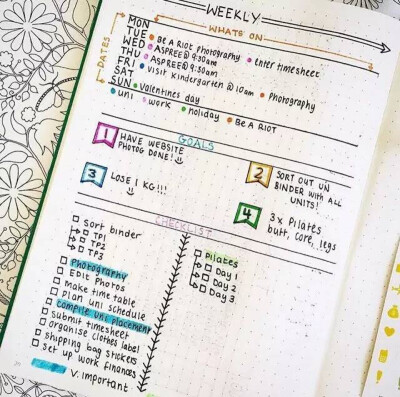 WEEKLY
WHATS ON
DATES
MON
TUE Be A Riot Photography
WED ASPREE@9:30am enter timesheet
THU ASPREE@9:30am
FRI Visit Kindergarten @ 10am Photography
SAT
SUN Valentines day
uni work holiday Be A RIOT
GOALS
1 HAVE WEBSITE
PHOTOG DONE!
2 SORT OUT UNI
BINDER WITH ALL
UNITS!
3 LOSE 1 KG!!!
4 3x Pilates
butt, core, legs
CHECKLIST
Sort binder
TP1
TP2
TP3
Photography
Edit Photos
make time table
Plan uni schedule
Compile uni placement
Submit timesheet
organise clothes label
Shipping bag stickers
Set up work finances
V. important
Pilates
Day 1
Day 2
Day 3